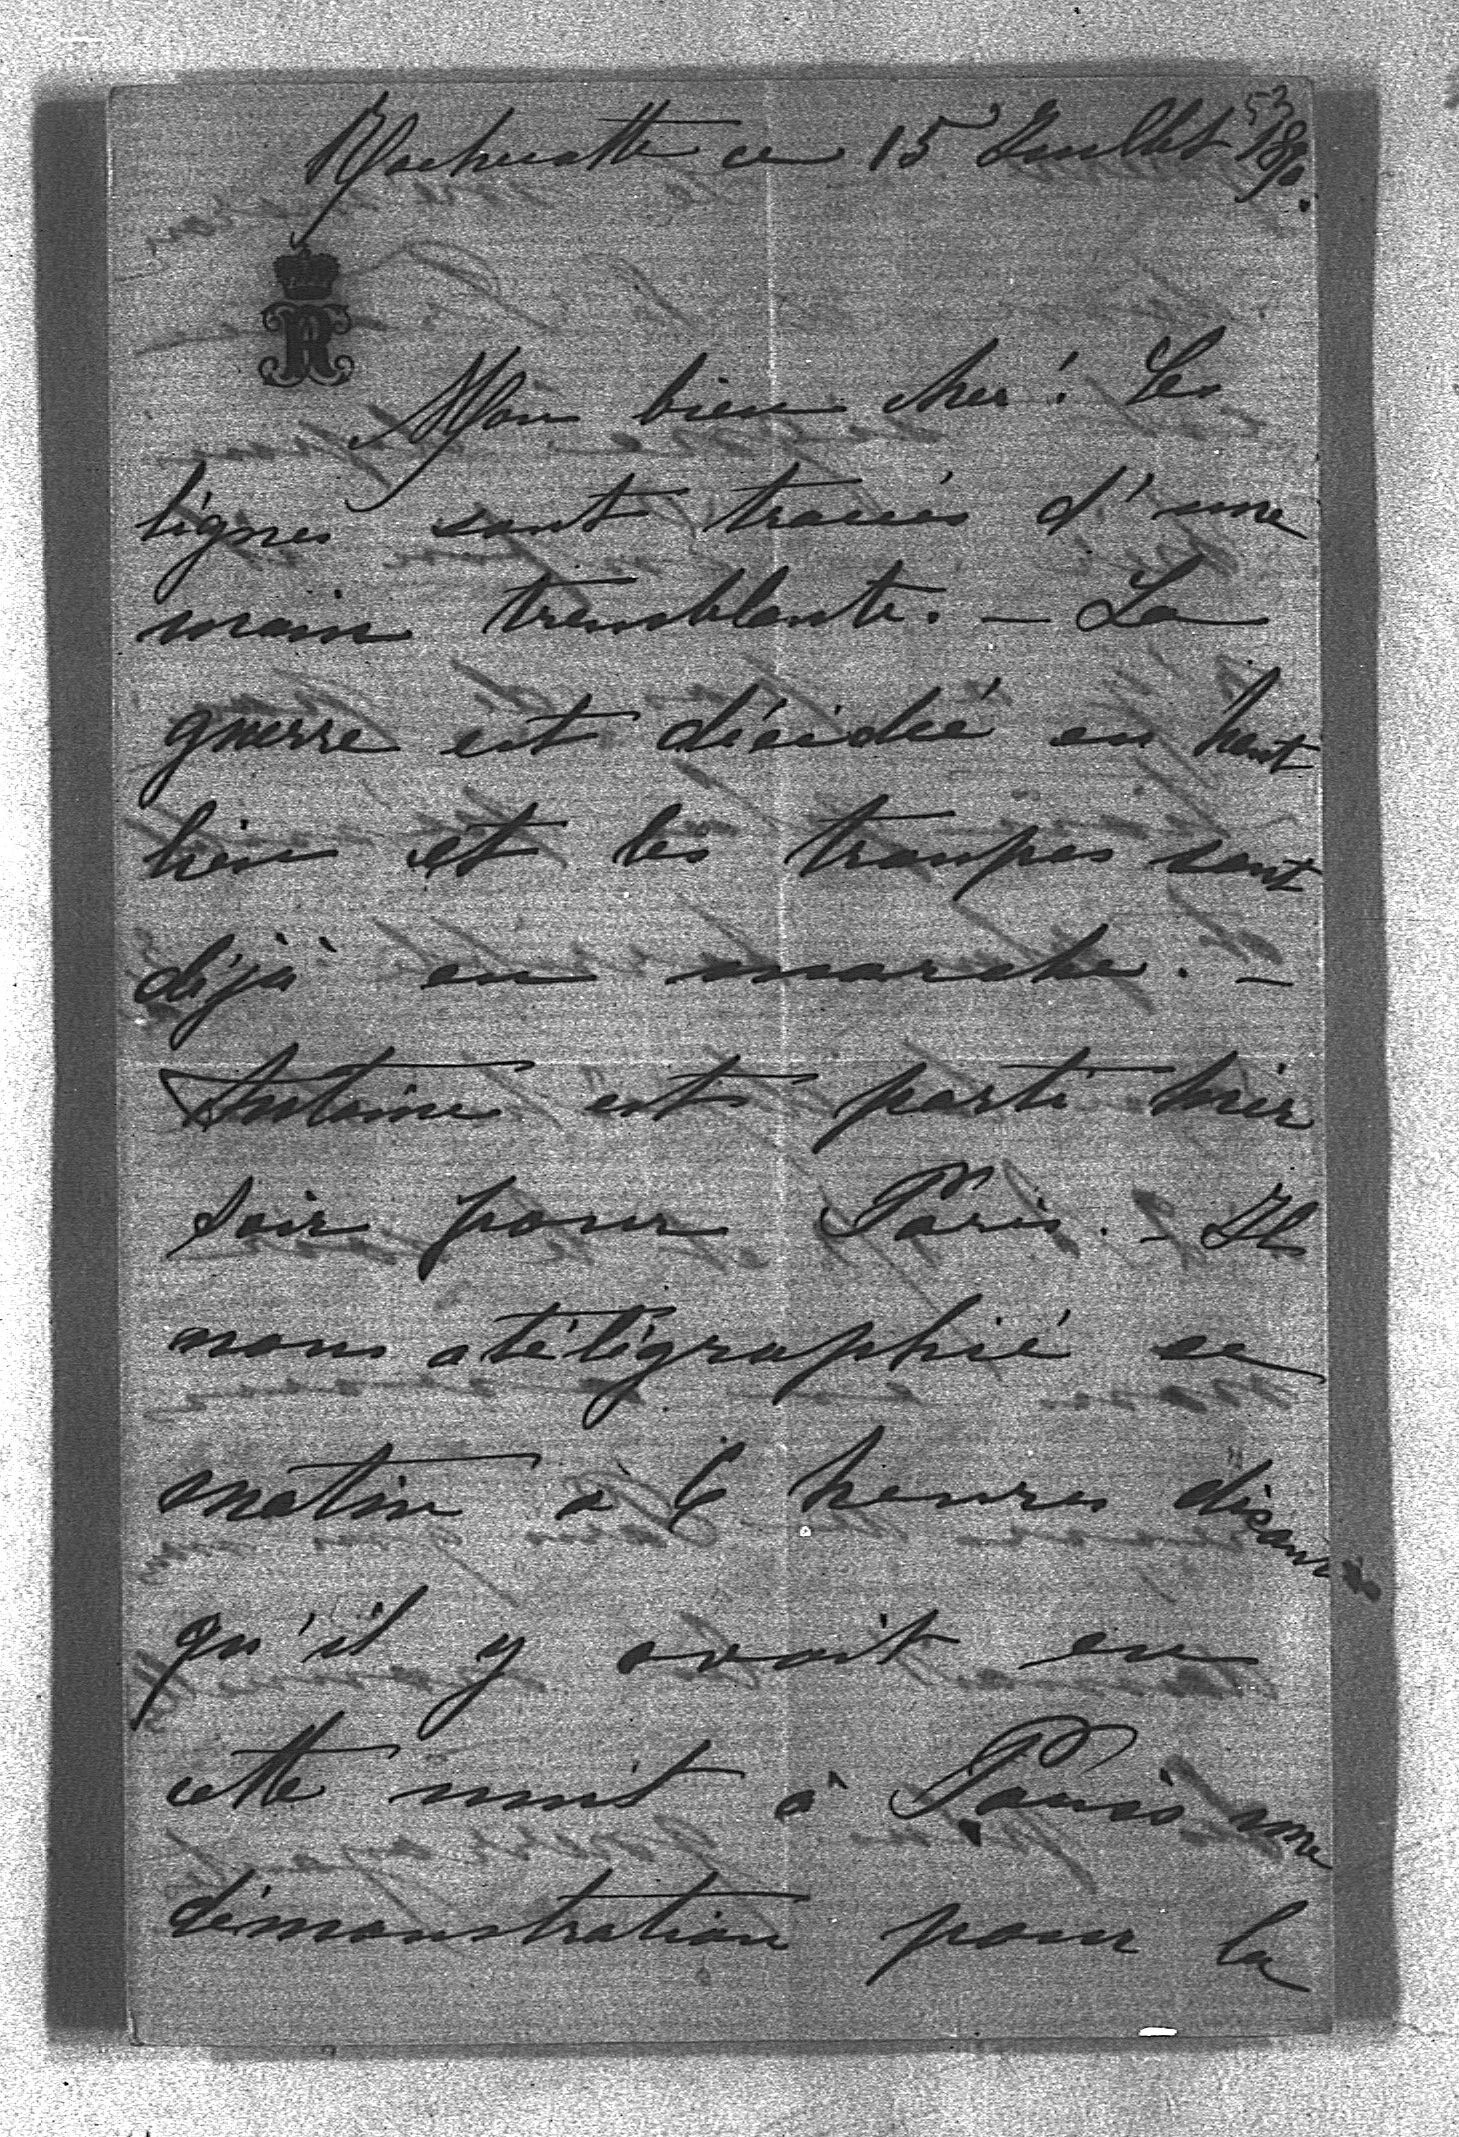 53
Rochecotte ce 15 Juillet 1870.
R
Mon bien cher! Ces
lignes sont tracées d'une
main tremblante. — La
guerre est décidée en haut
lieu et les troupes sont
déjà en marche. —
Antoine est parti hier
soir pour Paris. — Il
nous a télégraphié ce
matin à 6 heures disant
qu'il y avait eu
cette nuit à Paris une
démonstration pour la